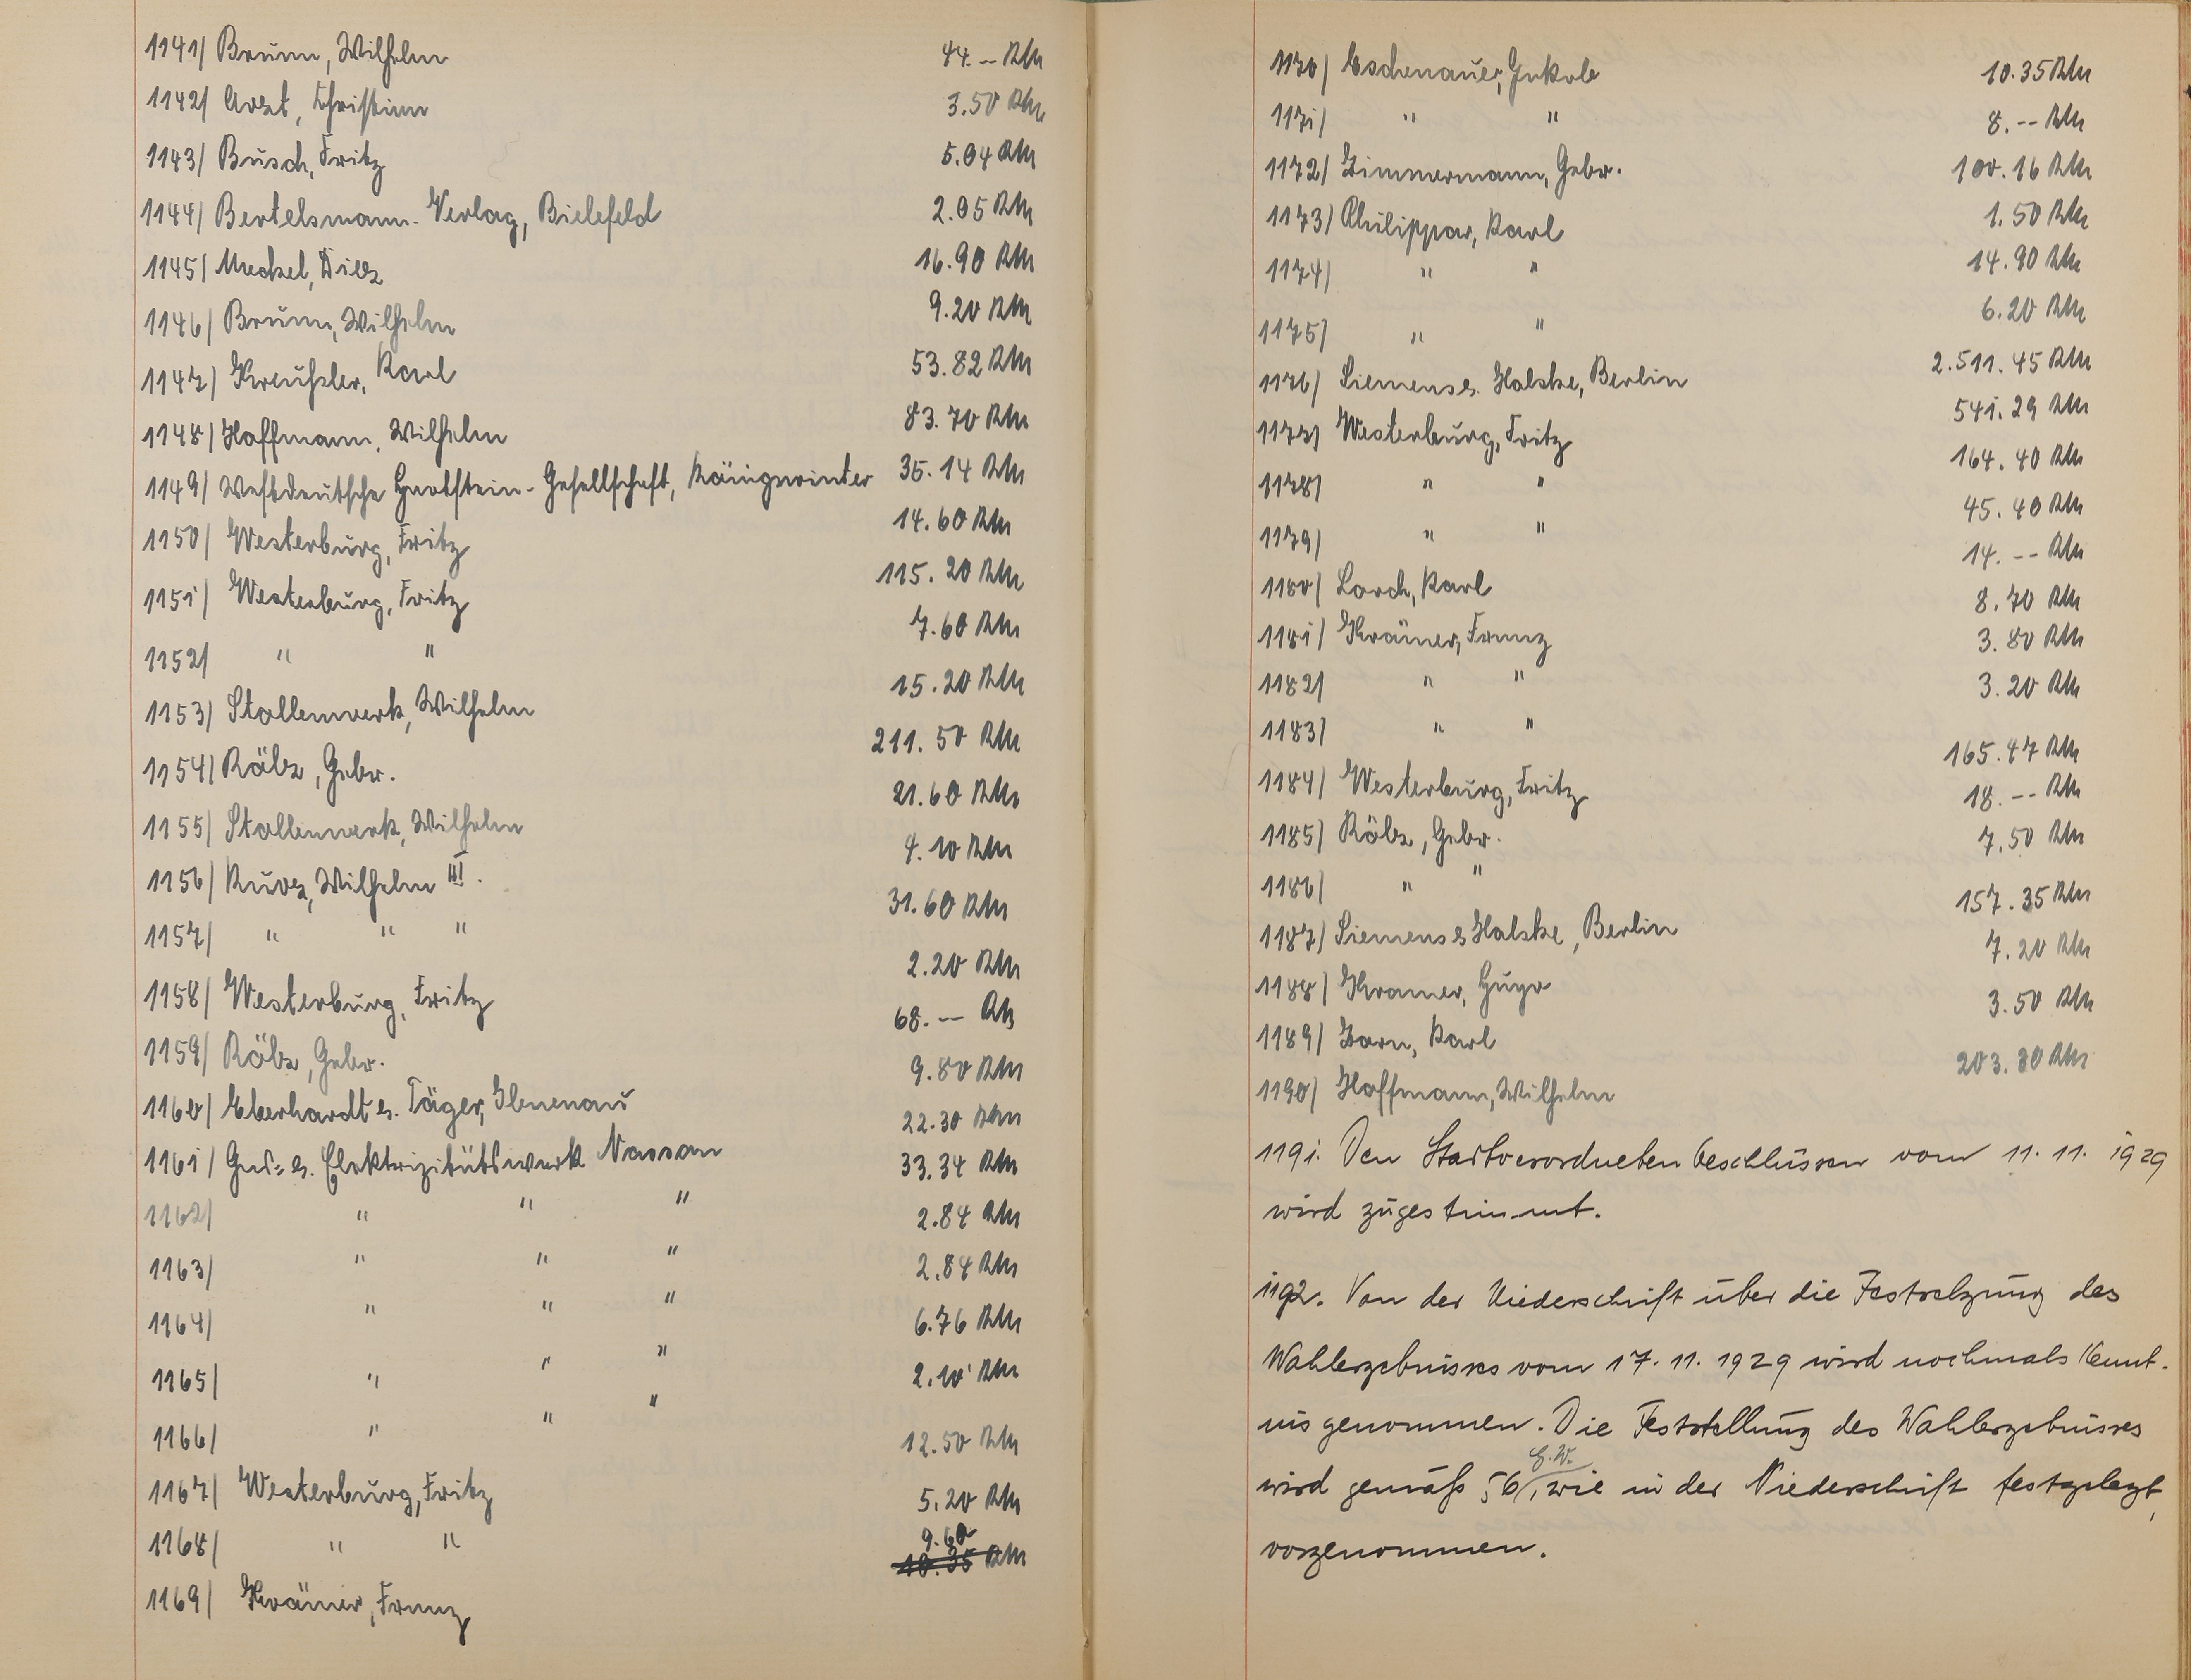 1141/ Brunn, Wilhelm 44.-- RM
1142/ Arzt, Christian 3.50 RM
1143/ Busch, Fritz 5.04 RM
1144/ Bertelsmann-Verlag, Bielefeld 2.05 RM
1145/ Meckel, Diez 16.90 RM
1146/ Brunn, Wilhelm 9.20 RM
1147/ Kreußler, Karl 53.82 RM
1148/ Hoffmann, Wilhelm 83.70 RM
1149/ Westdeutsche Hartstein-Gesellschaft, Königswinter 35.14 RM
1150/ Westerburg, Fritz 14.60 RM
1151/ Westerburg, Fritz 115.20 RM
1152/ " " 7.60 RM
1153/ Stollenwerk, Wilhelm 15.20 RM
1154/ Räbz, Gebr. 211.50 RM
1155/ Stollenwerk, Wilhelm 21.60 RM
1156/ Kurz, Wilhelm III. 4.10 RM
1157/ " " " 31.60 RM
1158/ Westerburg, Fritz 2.20 RM
1159/ Röbz, Gebr. 68.-- RM
1160/ Eberhardt & Jäger, Ilmenau 9.80 RM
1161/ Gas- & Elektrizitätswerk Nassau 22.30 RM
1162/ " " " 33.34 RM
1163/ " " " 2.84 RM
1164/ " " " 2.84 RM
1165/ " " " 6.76 RM
1166/ " " " 2.10 RM
1167/ Westerburg, Fritz 12.50 RM
1168/ " " 5.20 RM
1169/ Krämer, Franz 9.60 10.35 RM
1170/ Eschenauer, Jakob 10.35 RM
1171/ " " 8.-- RM
1172/ Zimmermann, Gebr. 100.16 RM
1173/ Philippar, Karl 1.50 RM
1174/ " " 14.90 RM
1175/ " " 6.20 RM
1176/ Siemens & Halske, Berlin 2.511.45 RM
1177/ Westerburg, Fritz 541.29 RM
1178/ " " 164.40 RM
1179/ " " 45.40 RM
1180/ Lorch, Karl 14.-- RM
1181/ Krämer, Franz 8.70 RM
1182/ " " 3.80 RM
1183/ " " 3.20 RM
1184/ Westerburg, Fritz 165.47 RM
1185/ Röbz, Gebr. 18.-- RM
1186/ " " 7.50 RM
1187/ Siemens & Halske, Berlin 157.35 RM
1188/ Kramer, Hugo 7.20 RM
1189/ Zorn, Karl 3.50 RM
1190/ Hoffmann, Wilhelm 203.80 RM
1191. Den Stadtverordnetenbeschlüssen vom 11.11. 1929
wird zugestimmt.
1192. Von der Niederschrift über die Festsetzung des
Wahlergebnisses vom 17.11.1929 wird nochmals Kennt-
nis genommen. Die Feststellung des Wahlergebnisses
wird gemäß §6, wie in der Niederschrift festgelegt,
vorgenommen.